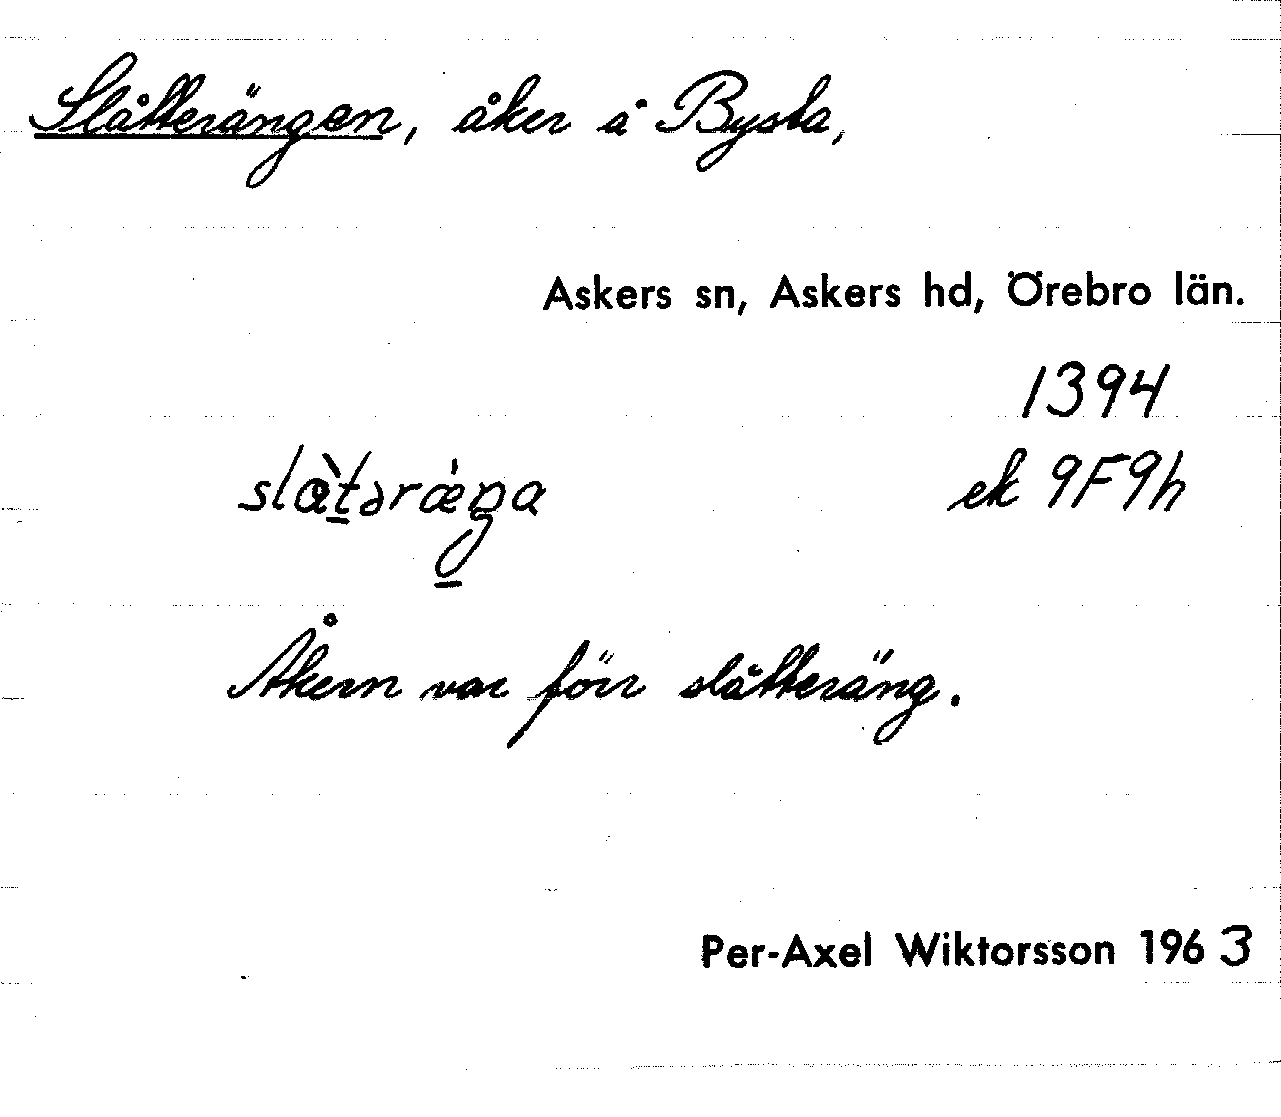 Slåtterängen, åker å Bysta,
Askers sn, Askers hd, Örebro län.
1394
ek 9F9h
Åkern var förr slåtteräng.
Per-Axel Wiktorsson 1963